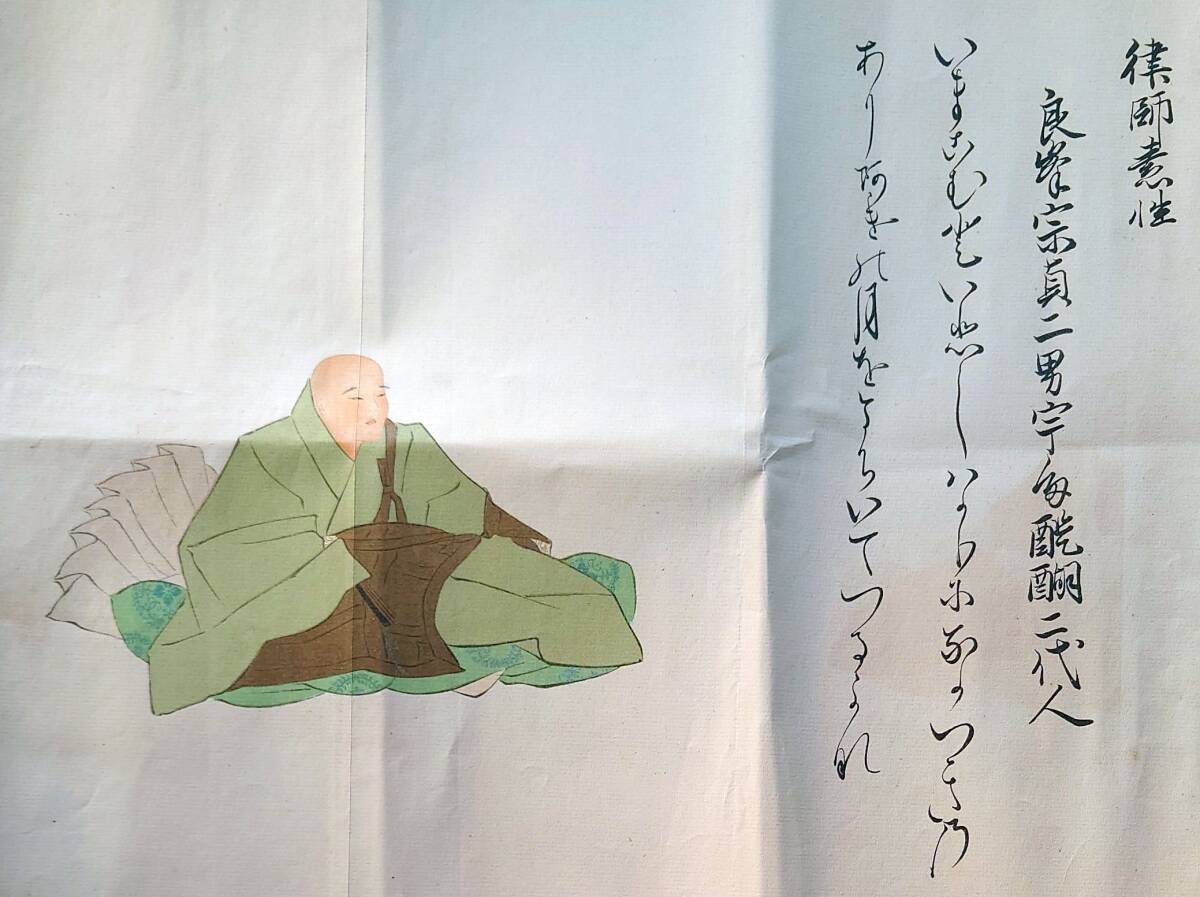 律師素性
良峯宗貞二男宇多醍醐二代人
いまこむといひしハかりになかつきの
あり阿けの月をまちいてつるかな